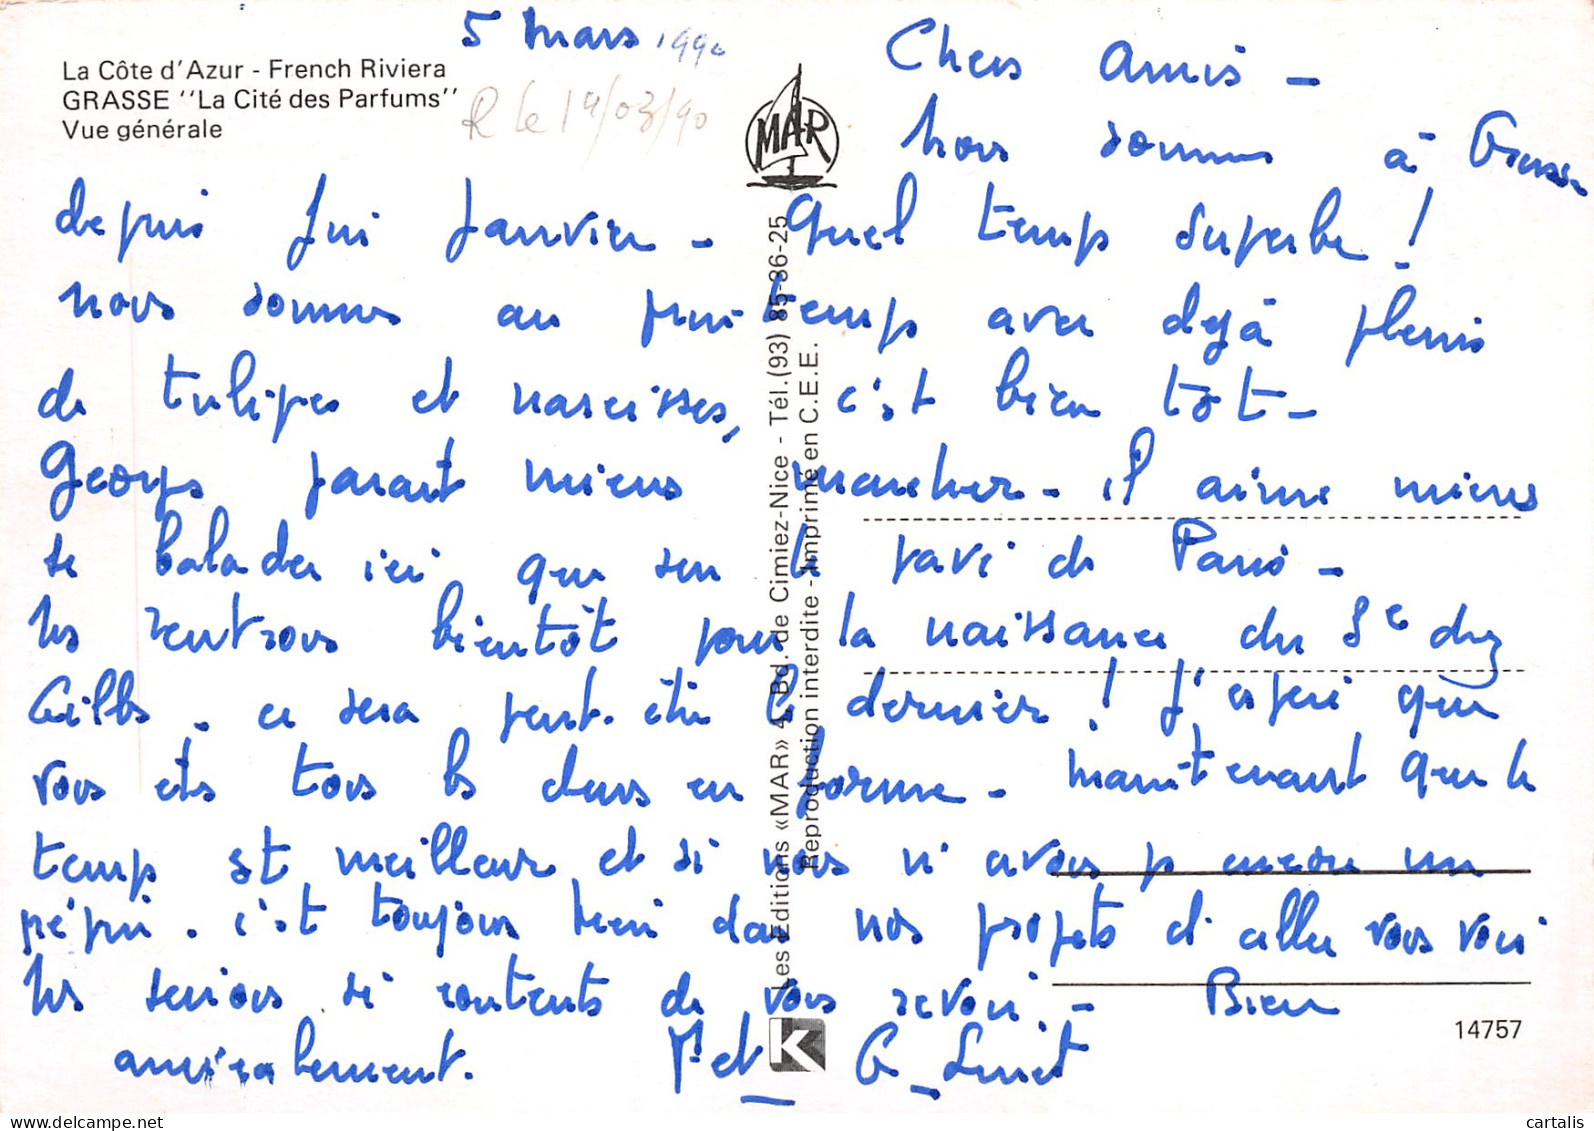 La Côte d'Azur - French Riviera
GRASSE "La Cité des Parfums"
Vue générale
5 mars 1990
R le 19/03/90
MAR
Chers Amis -
Nous sommes à Grasse
depuis fin Janvier - Quel temps superbe !
nous sommes au printemps avec déjà pleins
de tulipes et narcisses, c'est bien tôt -
Georges parait mieux marcher - il aime mieux
se balader ici que sur le pavé de Paris -
Ns rentrons bientôt pour la naissance du 5e chez
Gilles - ce sera peut-être le dernier ! J'espère que
vous êtes tous les deux en forme - maintenant que le
temps est meilleur et si nous n'avons p encore un
pépin. c'est toujours dans nos projets d'aller vous voir
Ns serions si contents de vous revoir - Bien
amicalement.
et G
Les Editions «MAR» 4, Bd. de Cimiez-Nice - Tél.(93) 85-36-25
Reproduction interdite - Imprimé en C.E.E.
K
14757
cartalis